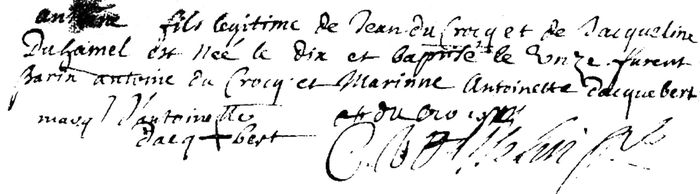 antoine fils legitime de Jean du Crocq et de Jacqueline
Duhamel est neé le dix et baptisé le unze furent
Parin antoine du Crocq et Marinne Antoinette dacquebert
marq d'antoinette a du crocq
dacq + bert